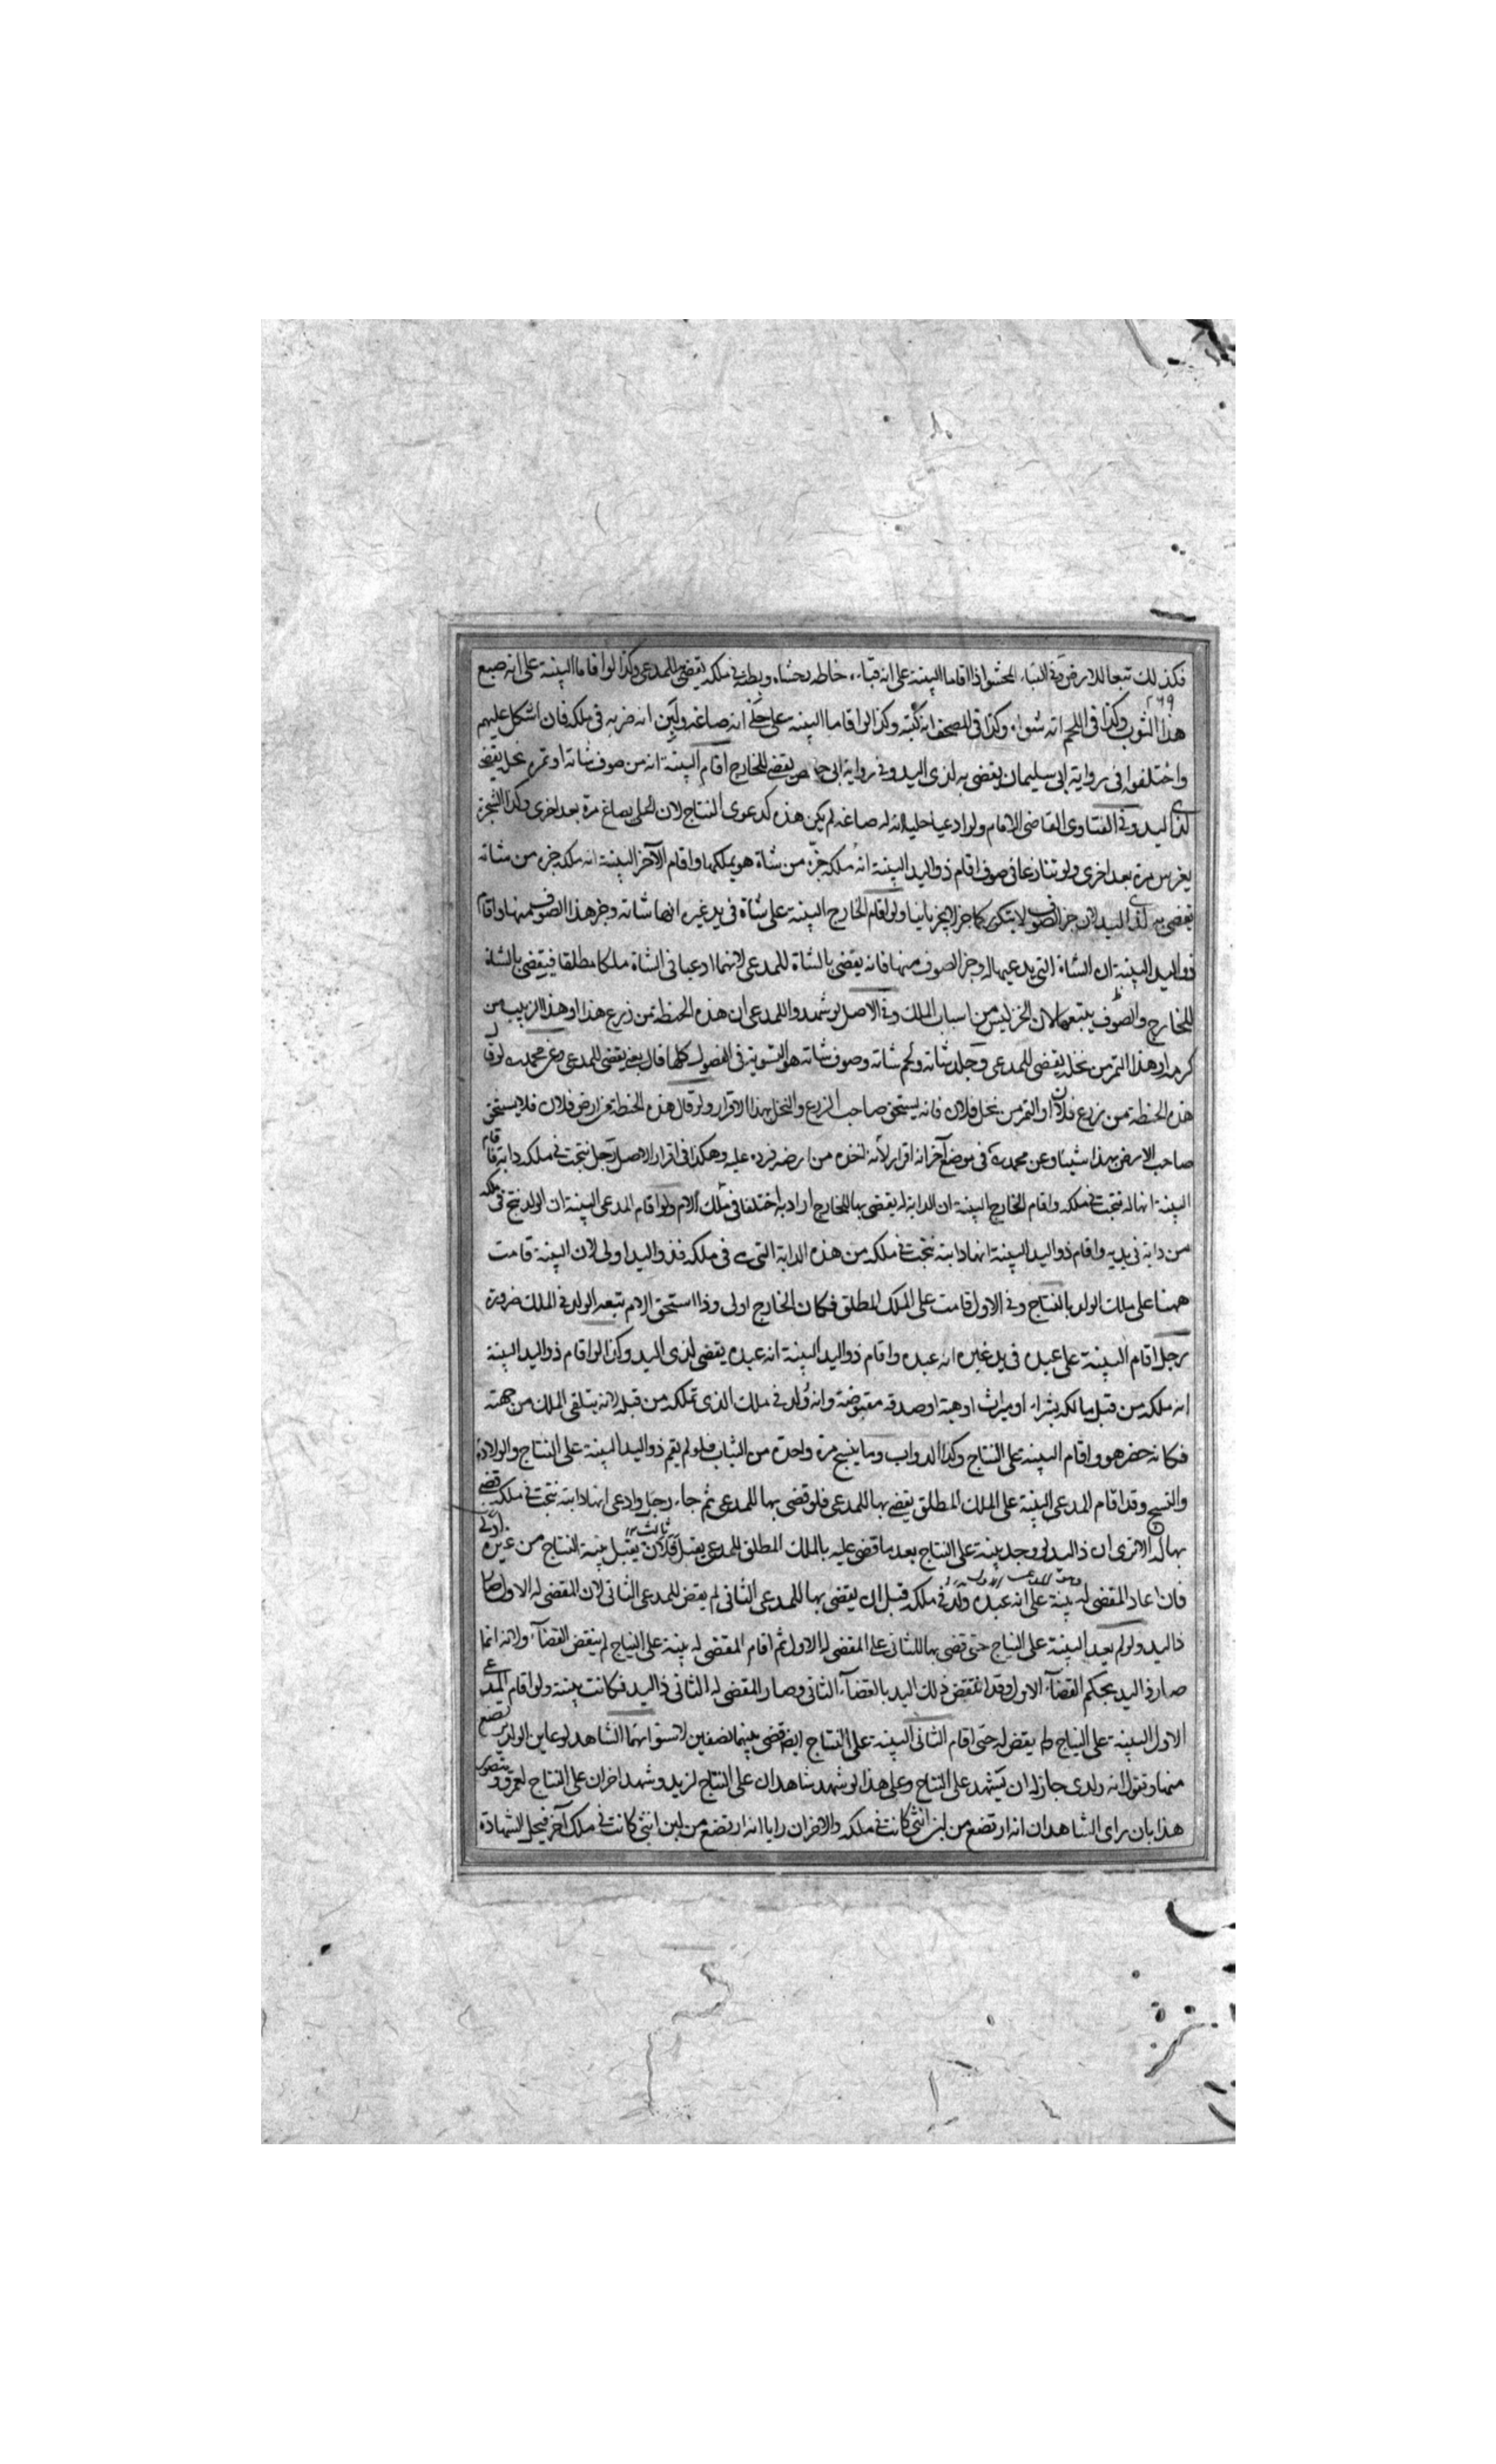 فكذلك تبعا للارض وفى القباء المحشو اذا اقاما البينة على انه قباءه خاطه بحشاه وبطنه فى ملكه يقضى للمدعى وكذا لو اقاما البينة على انه صبغ
٢٦٩
هذا الثوب وكذا فى اللحم انه شواه وكذا فى المصحف انه كتبه وكذا لو اقاما البينة على حلى انه صاغه ولبن انه ضربه فى ملكه فان اشكل عليهم
واختلفوا فى رواية ابى سليمان يقضى به لذى اليد وفى رواية ابى حفص يقضى للخارج اقام البينة انه من صوف شاته او تمره نخله يقضى
لذى اليد وفى الفتاوى القاضى الامام ولو ادعيا حليا انه له صاغه لم يكن هذه كدعوى النتاج لان الحلى يصاغ مرة بعد اخرى وكذا الشجر
يغرس مرة بعد اخرى ولو تنازعا فى صوف اقام ذو اليد البينة انه ملكه جزه من شاة هو يملكها واقام الآخر البينة انه ملكه جزه من شاته
يقضى به لذى اليد لان جز الصوف لا يتكرر كما جز لا يجز ثانيا ولو اقام الخارج البينة على شاة فى يد غيره انها شاته وجز هذا الصوف منها واقام
ذو اليد البينة ان الشاة التى يدعيها له وجز الصوف منها فانه يقضى بالشاة للمدعى لانهما ادعيا فى الشاة ملكا مطلقا فيقضى بالشاة
للخارج والصوف يتبعها لان الجز ليس من اسباب الملك وفى الاصل لو شهدوا للمدعى ان هذه الحنطة من زرع هذا او هذا الزبيب من
كرمه او هذا التمر من نخله يقضى للمدعى وجلد شاته ولحم شاته وصوف شاته هو التسوية فى الفصول كلها قال يعنى يقضى للمدعى وعن محمد لو قال
هذه الحنطة من زرع فلان او التمر من نخل فلان فانه يستحق صاحب الزرع والنخل بهذا الاقرار ولو قال هذه الحنطة من ارض فلان فلا يستحق
صاحب الارض بهذا شيئا وعن محمد فى موضع آخر انه اقرار لانه اخذه من ارضه فرده عليه وهكذا فى اقرار الاصل رجل نتجت فى ملكه دابة فاقام
البينة انها له نتجت فى ملكه واقام الخارج البينة ان الدابة له يقضى بها للخارج اراد به اختلفا فى ملك الام ولو اقام المدعى البينة ان الولد نتج فى ملكه
من دابة فى يديه واقام ذو اليد البينة انها دابته نتجت فى ملكه من هذه الدابة التى فى ملكه فذو اليد اولى لان البينة قامت
ههنا على ملك الولد بالنتاج وفى الاول قامت على الملك المطلق فكان الخارج اولى وذا استحق الام يتبعه الولد فى الملك ضرورة
رجل اقام البينة على عبد فى يد غيره انه عبده واقام ذو اليد البينة انه عبده يقضى لذى اليد وكذا لو اقام ذو اليد البينة
انه ملكه من قبل مالكه بشراء او ميراث او هبة او صدقة مقبوضة وانه ولد فى ملك الذى تملكه من قبله لانه يتلقى الملك من جهته
فكانه حضر هو واقام البينة على النتاج وكذا الدواب وما ينسج مرة واحدة من الثياب فلو لم يقم ذو اليد البينة على النتاج والولادة
والنسج وقد اقام المدعى البينة على الملك المطلق يقضى بها للمدعى فلو قضى بها للمدعى ثم جاء رجل وادعى انها دابته نتجت فى ملكه قضى
بها له الا ترى ان ذا اليد لو وجد بينة على النتاج بعد ما قضى عليه بالملك المطلق للمدعى يقبل فلان يقبل بينة النتاج من غيره اولى
فان اعاد المقضى له بينة على انه عبده ولد فى ملكه قبل ان يقضى بها للمدعى الثانى لم يقض للمدعى الثانى لان المقضى له الاول صار
ذا اليد ولو لم يعيد البينة على النتاج حتى قضى بها للثانى على المقضى له الاول ثم اقام المقضى له بينة على النتاج لم ينقض القضاء ولانه انما
صار ذا اليد بحكم القضاء الاول وقد انتقض ذلك اليد بالقضاء الثانى وصار المقضى له الثانى ذا اليد فكانت بينته ولو اقام المدعى
الاول البينة على النتاج ولم يقض له حتى اقام الثانى البينة على النتاج ايضا قضى بينهما نصفين لاستوائهما الشاهد لو عاين الولد يرتضع
منها وتقول انه ولدى جاز له ان يشهد على النتاج وعلى هذا لو شهد شاهدان على النتاج لزيد وشهد اخران على النتاج لعمرو ويتصور
هذا بان راى الشاهدان انه ارتضع من لبن انثى كانت فى ملكه والاخران رايا انه ارتضع من لبن انثى كانت فى ملك آخر فيحل الشهادة